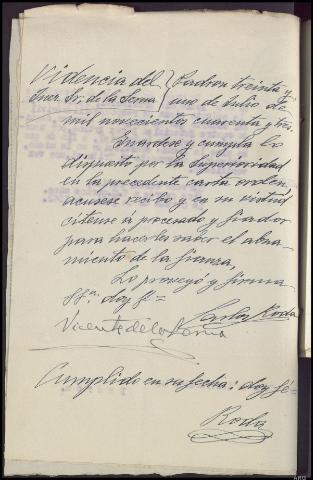 Providencia del Padron treinta y
Juez Sr. de la Serna uno de Julio de
mil novecientos cuarenta y tres.
Guardese y cumpla lo
dispuesto por la Superioridad
en la precedente carta orden
acusese recibo y en su virtud
citense a procesado y fiador
para hacerles saber el alza-
miento de la fianza,
Lo proveyó y firma
Sª. doy fé =
Carlos Roda
Vicente de la Serna
Cumplido en su fecha: doy fé =
Roda